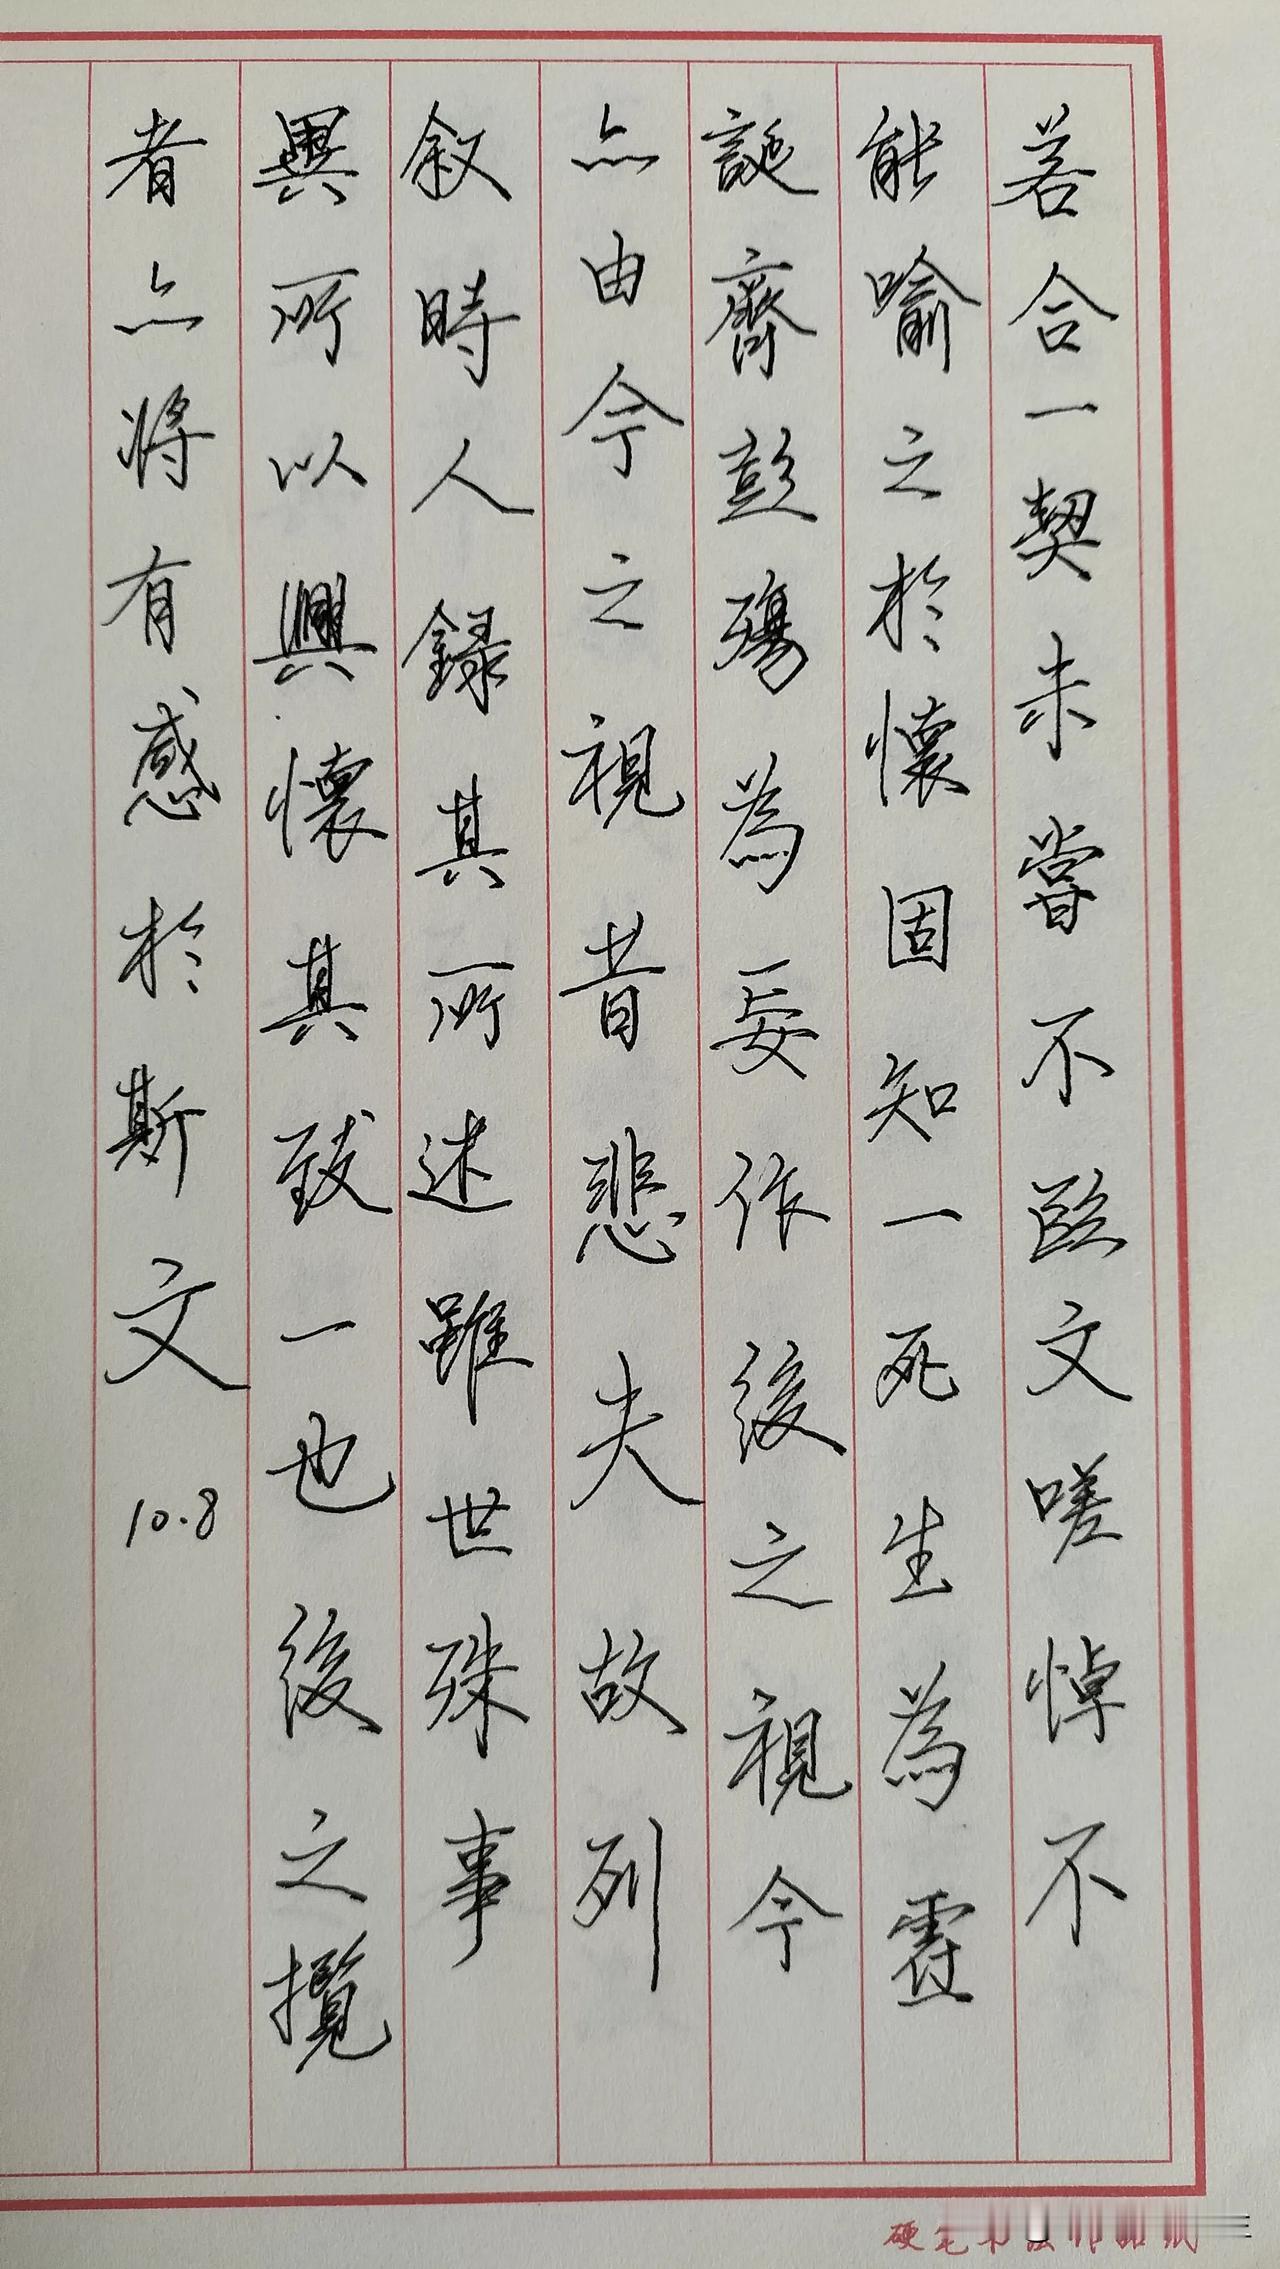 若合一契未嘗不臨文嗟悼不
能喻之於懷固知一死生為虛
誕齊彭殤為妄作後之視今
亦由今之視昔悲夫故列
叙時人錄其所述雖世殊事
異所以興懷其致一也後之攬
者亦將有感於斯文
10.8
硬笔书法